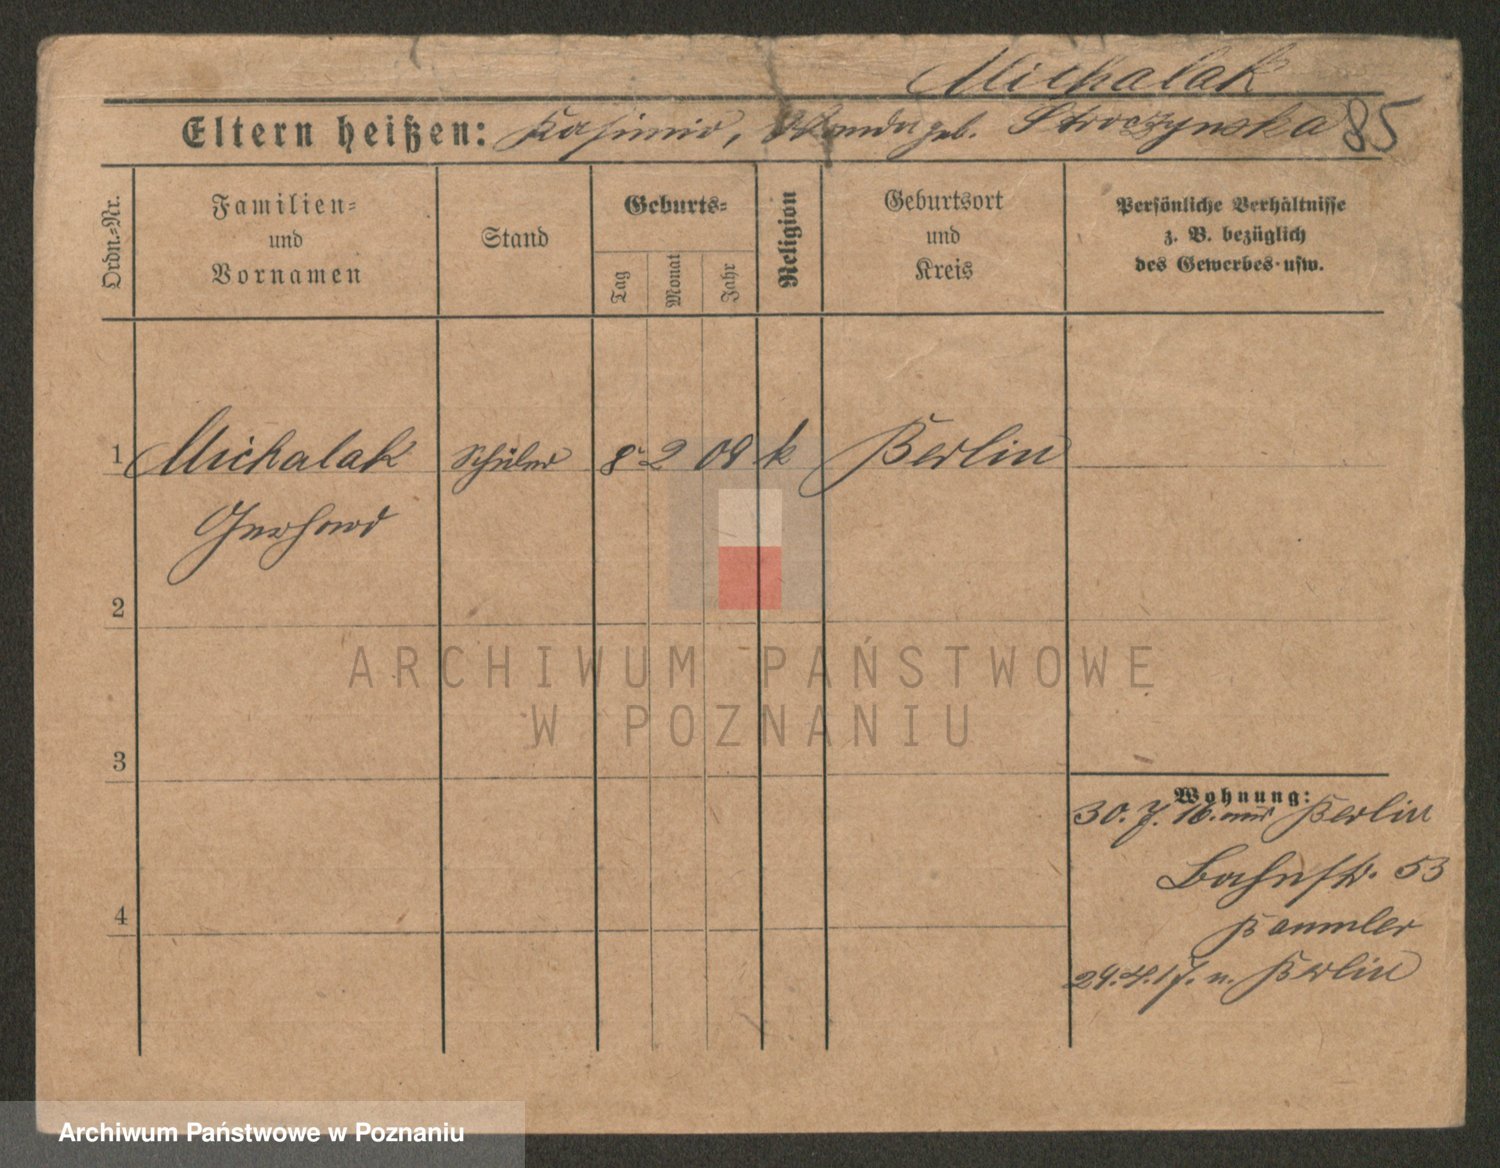 Michalak
Eltern heißen: Kasimir, Wanda geb. Stroczynska 85
Ordn.-Nr.
Familien-
und
Vornamen
Stand
Geburts-
Tag
Monat
Jahr
Religion
Geburtsort
und
Kreis
Persönliche Verhältnisse
z. B. bezüglich
des Gewerbes usw.
1 Michalak Schüler 8 2 08 k Berlin
Gerhard
2
3
4
Wohnung:
30. 7. 16. aus Berlin
Bahnstr. 53
24. 4. 17. n. Berlin
ARCHIWUM PAŃSTWOWE
W POZNANIU
Archiwum Państwowe w Poznaniu